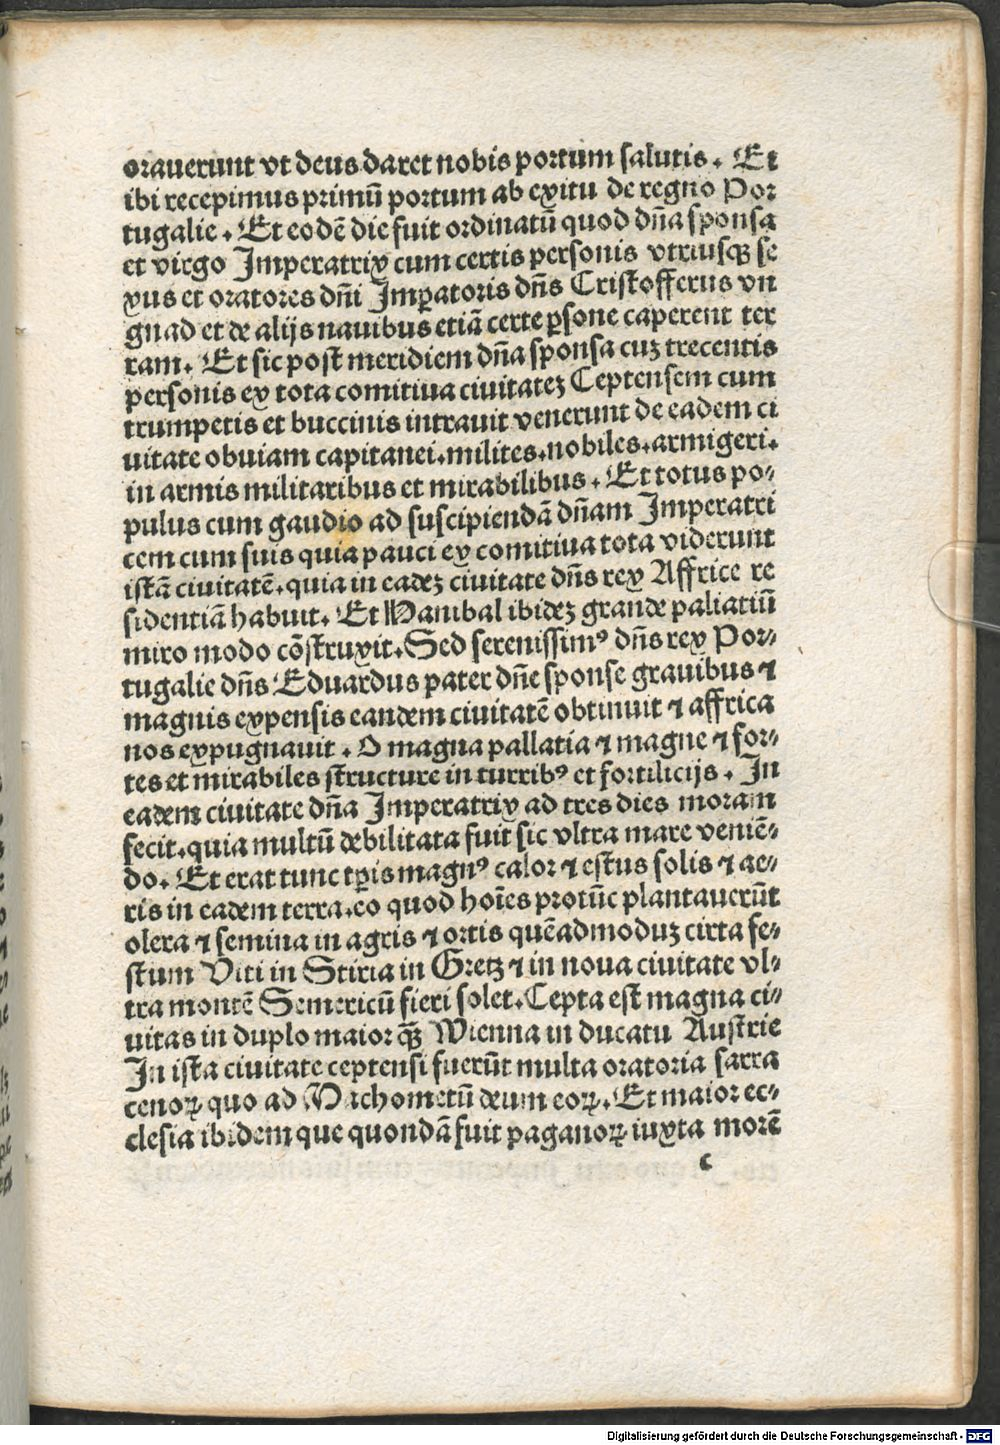 orauerunt vt deus daret nobis portum salutis. Et
ibi recepimus primū portum ab exitu de regno Por
tugalie. Et eodē die fuit ordinatū quod dn̄a sponsa
et virgo Imperatrix cum certis personis vtriusqꝫ se
xus et oratores dn̄i Imꝑatoris dn̄s Cristofferus vn
gnad et de alijs nauibus etiā certe ꝑsone caperent ter
ram. Et sic post meridiem dn̄a sponsa cuꝫ trecentis
personis ex tota comitiua ciuitateꝫ Ceptensem cum
trumpetis et buccinis intrauit venerunt de eadem ci
uitate obuiam capitanei.milites.nobiles.armigeri.
in armis militaribus et mirabilibus. Et totus po⸗
pulus cum gaudio ad suscipiendā dn̄am Imperatri
cem cum suis quia pauci ex comitiua tota viderunt
istā ciuitatē.quia in eadeꝫ ciuitate dn̄s rex Affrice re
sidentiā habuit. Et Hanibal ibideꝫ grande paliatiū
miro modo cōstruxit.Sed serenissimꝰ dn̄s rex Por⸗
tugalie dn̄s Eduardus pater dn̄e sponse grauibus ⁊
magnis expensis eandem ciuitatē obtinuit ⁊ affrica
nos expugnauit. O magna pallatia ⁊ magne ⁊ for⸗
tes et mirabiles structure in turribꝰ et fortilicijs. In
eadem ciuitate dn̄a Imperatrix ad tres dies moram
fecit.quia multū debilitata fuit sic vltra mare veniē⸗
do. Et erat tunc tꝑis magnꝰ calor ⁊ estus solis ⁊ ae⸗
ris in eadem terra.eo quod hoīes protūc plantauerūt
olera ⁊ semina in agris ⁊ ortis quēadmoduꝫ cirta fe⸗
stum Viti in Stiria in Gretꝫ ⁊ in noua ciuitate vl⸗
tra montē Semericū fieri solet.Cepta est magna ci⸗
uitas in duplo maior qꝫ̄ Wienna in ducatu Austrie
In ista ciuitate ceptensi fuerūt multa oratoria sarra
cenoꝝ quo ad Machometū deum eoꝝ. Et maior ec⸗
clesia ibidem que quondā fuit paganoꝝ iuxta morē
c
Digitalisierung gefördert durch die Deutsche Forschungsgemeinschaft - DFG